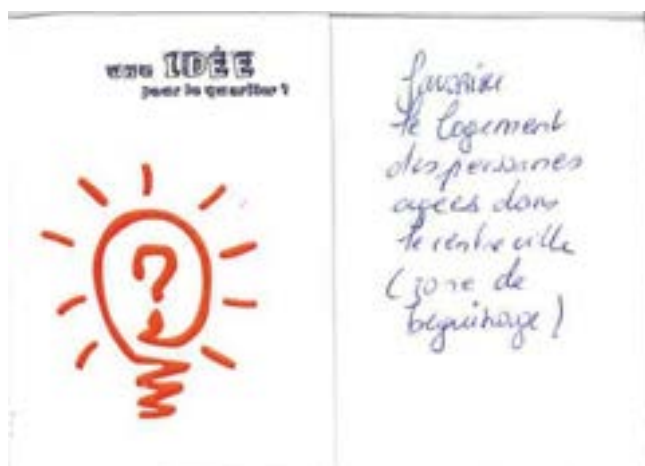 une IDÉE
pour le quartier ?
?
favoriser
le logement
des personnes
agées dans
le centre ville
(zone de
beguinage)